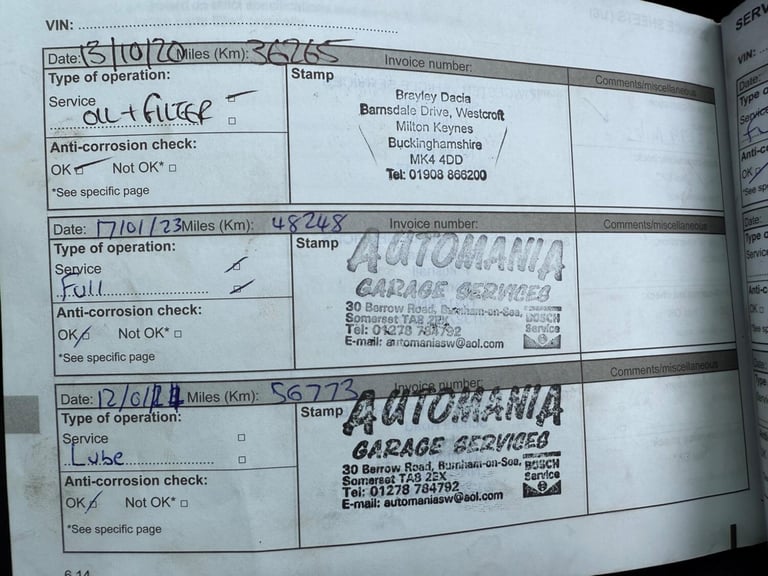 VIN:
Date: 13/10/20 Miles (Km): 36265 Invoice number: Comments/miscellaneous
Type of operation:
Service
OIL + FILTER
Anti-corrosion check:
OK Not OK*
*See specific page
Stamp
Brayley Dacia
Barnsdale Drive, Westcroft
Milton Keynes
Buckinghamshire
MK4 4DD
Tel: 01908 866200
Date: 17/01/23 Miles (Km): 48248 Invoice number: Comments/miscellaneous
Type of operation:
Service
Full
Anti-corrosion check:
OK Not OK*
*See specific page
Stamp
AUTOMANIA
GARAGE SERVICES
30 Berrow Road, Burnham-on-Sea,
Somerset TA8 2EX
Tel: 01278 784792
E-mail: automaniasw@aol.com
BOSCH
Service
Date: 12/01/24 Miles (Km): 56773 Invoice number: Comments/miscellaneous
Type of operation:
Service
Lube
Anti-corrosion check:
OK Not OK*
*See specific page
Stamp
AUTOMANIA
GARAGE SERVICES
30 Berrow Road, Burnham-on-Sea,
Somerset TA8 2EX
Tel: 01278 784792
E-mail: automaniasw@aol.com
BOSCH
Service
6.14